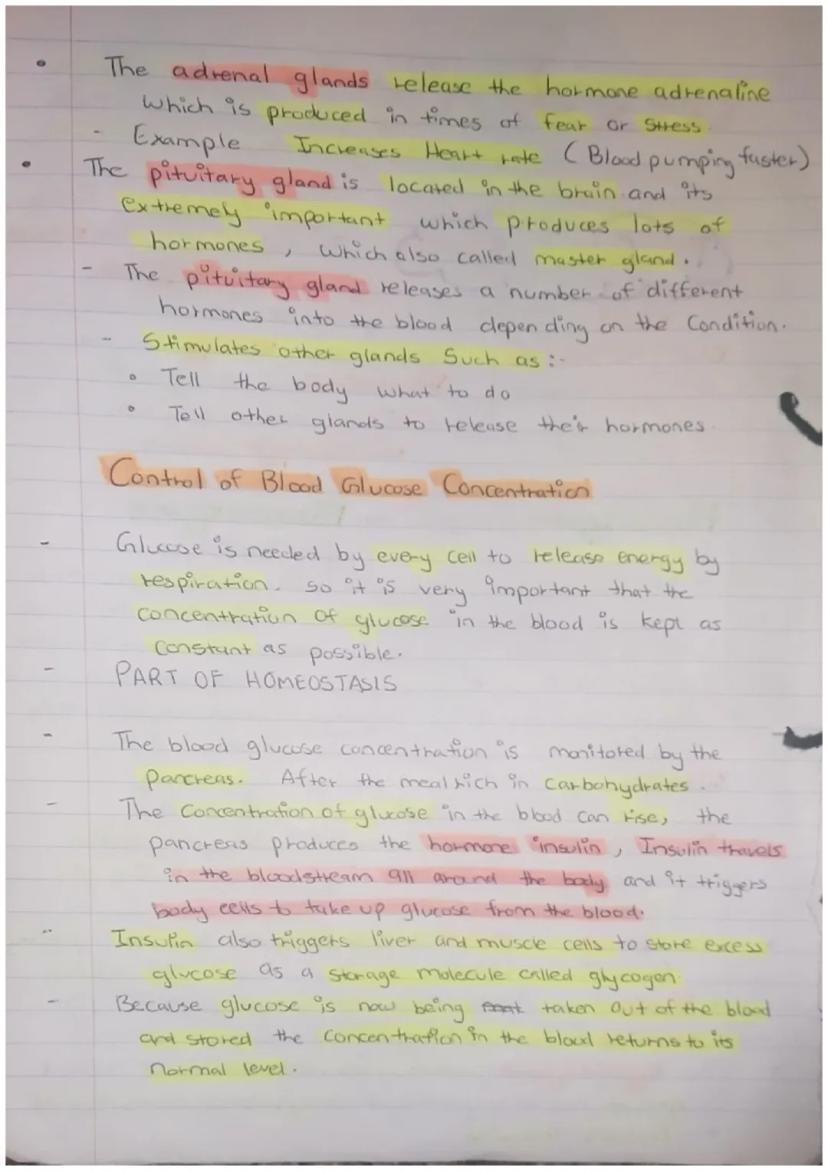 • The adrenal glands release the hormone adrenaline
which is produced in times of fear or stress
- Example Increases Heart rate (Blood pumping faster)
• The pituitary gland is located in the brain and its
extremely important which produces lots of
hormones, which also called master gland.
- The pituitary gland releases a number of different
hormones into the blood depending on the Condition.
- Stimulates other glands Such as:-
• Tell the body what to do
• Tell other glands to release their hormones
Control of Blood Glucose Concentration
- Glucose is needed by every cell to release energy by
respiration. so it is very important that the
concentration of glucose in the blood is kept as
constant as possible.
- PART OF HOMEOSTASIS
- The blood glucose concentration is monitored by the
pancreas. After the meal rich in carbohydrates.
- The concentration of glucose in the blood can rise, the
pancreas produces the hormone insulin, Insulin travels
in the bloodstream all around the body and it triggers
body cells to take up glucose from the blood.
- Insulin also triggers liver and muscle cells to store excess
glucose as a storage molecule called glycogen
- Because glucose is now being taken out of the blood
and stored the concentration in the blood returns to its
normal level.